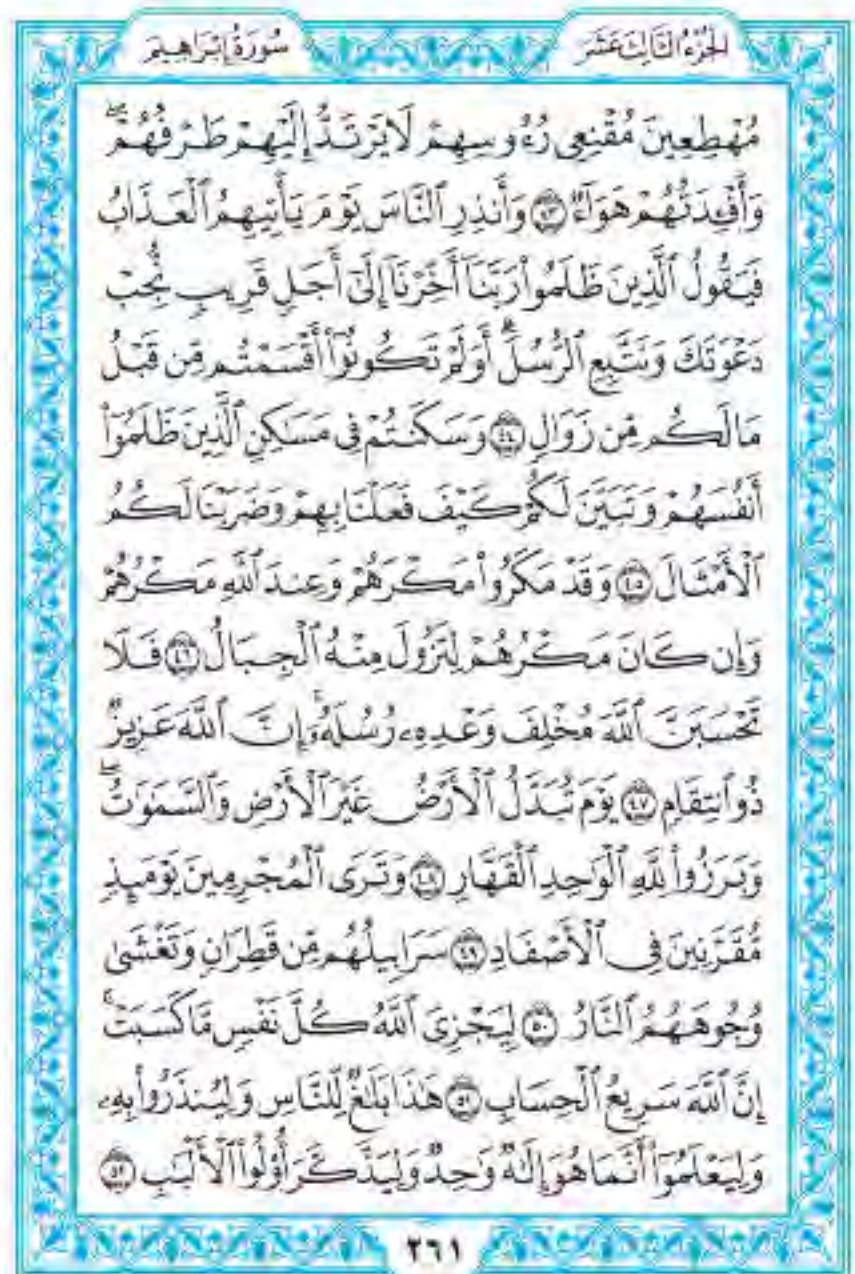 الجُزْءُ الثَّالِثَ عَشَرَ سُورَةُ إِبْرَاهِيمَ
مُهْطِعِينَ مُقْنِعِي رُءُوسِهِمْ لَا يَرْتَدُّ إِلَيْهِمْ طَرْفُهُمْۖ
وَأَفْـِٔدَتُهُمْ هَوَآءٌ ۝٤٣ وَأَنذِرِ ٱلنَّاسَ يَوْمَ يَأْتِيهِمُ ٱلْعَذَابُ
فَيَقُولُ ٱلَّذِينَ ظَلَمُوا۟ رَبَّنَآ أَخِّرْنَآ إِلَىٰٓ أَجَلٍ قَرِيبٍ نُّجِبْ
دَعْوَتَكَ وَنَتَّبِعِ ٱلرُّسُلَۗ أَوَلَمْ تَكُونُوٓا۟ أَقْسَمْتُم مِّن قَبْلُ
مَا لَكُم مِّن زَوَالٍ ۝٤٤ وَسَكَنتُمْ فِى مَسَٰكِنِ ٱلَّذِينَ ظَلَمُوٓا۟
أَنفُسَهُمْ وَتَبَيَّنَ لَكُمْ كَيْفَ فَعَلْنَا بِهِمْ وَضَرَبْنَا لَكُمُ
ٱلْأَمْثَالَ ۝٤٥ وَقَدْ مَكَرُوا۟ مَكْرَهُمْ وَعِندَ ٱللَّهِ مَكْرُهُمْ
وَإِن كَانَ مَكْرُهُمْ لِتَزُولَ مِنْهُ ٱلْجِبَالُ ۝٤٦ فَلَا
تَحْسَبَنَّ ٱللَّهَ مُخْلِفَ وَعْدِهِۦ رُسُلَهُۥٓۚ إِنَّ ٱللَّهَ عَزِيزٌ
ذُو ٱنتِقَامٍ ۝٤٧ يَوْمَ تُبَدَّلُ ٱلْأَرْضُ غَيْرَ ٱلْأَرْضِ وَٱلسَّمَٰوَٰتُۖ
وَبَرَزُوا۟ لِلَّهِ ٱلْوَٰحِدِ ٱلْقَهَّارِ ۝٤٨ وَتَرَى ٱلْمُجْرِمِينَ يَوْمَئِذٍ
مُّقَرَّنِينَ فِى ٱلْأَصْفَادِ ۝٤٩ سَرَابِيلُهُم مِّن قَطِرَانٍ وَتَغْشَىٰ
وُجُوهَهُمُ ٱلنَّارُ ۝٥٠ لِيَجْزِىَ ٱللَّهُ كُلَّ نَفْسٍ مَّا كَسَبَتْۚ
إِنَّ ٱللَّهَ سَرِيعُ ٱلْحِسَابِ ۝٥١ هَٰذَا بَلَٰغٌ لِّلنَّاسِ وَلِيُنذَرُوا۟ بِهِۦ
وَلِيَعْلَمُوٓا۟ أَنَّمَا هُوَ إِلَٰهٌ وَٰحِدٌ وَلِيَذَّكَّرَ أُو۟لُوا۟ ٱلْأَلْبَٰبِ ۝٥٢
٢٦١